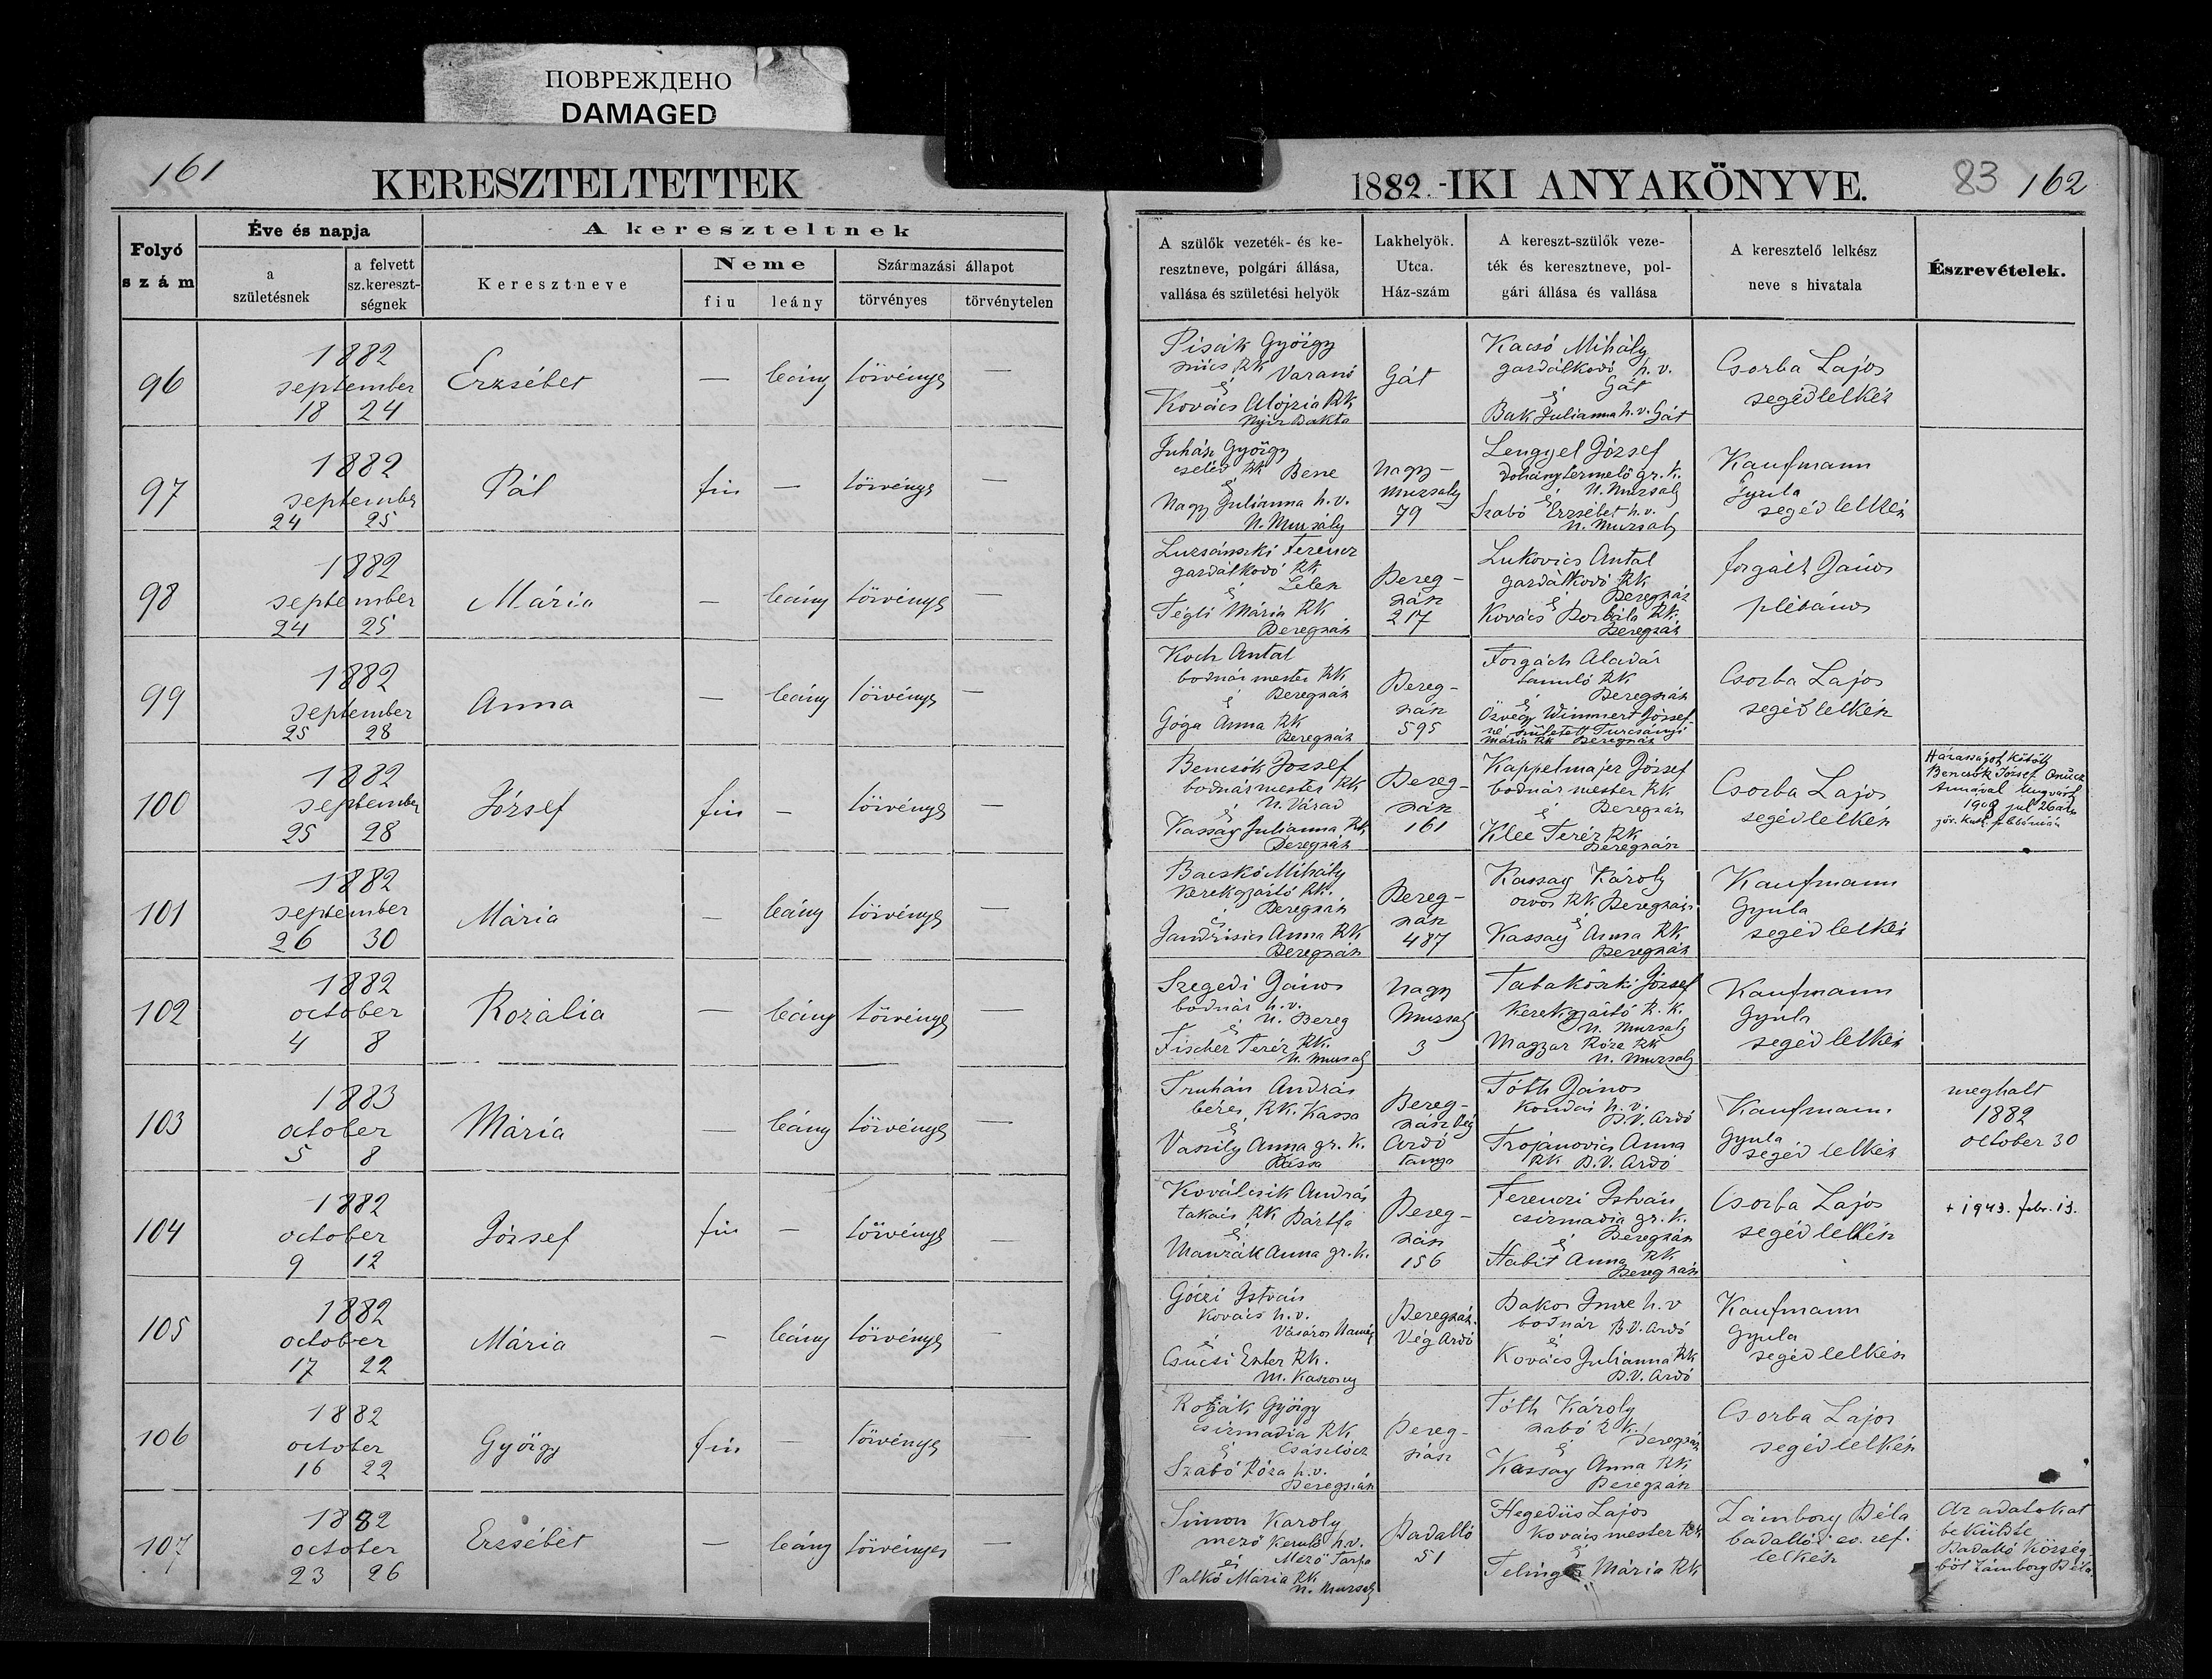 ПОВРЕЖДЕНО
DAMAGED
161
KERESZTELTETTEK
Folyó
szám
Éve és napja
a
születésnek
a felvett
sz.kereszt-
ségnek
A kereszteltnek
Keresztneve
Neme
fiu
leány
Származási állapot
törvényes
törvénytelen
1882.-IKI ANYAKÖNYVE.
83 162
A szülők vezeték- és ke-
resztneve, polgári állása,
vallása és születési helyök
Lakhelyök.
Utca.
Ház-szám
A kereszt-szülők veze-
ték és keresztneve, pol-
gári állása és vallása
A keresztelő lelkész
neve s hivatala
Észrevételek.
96
1882
september
18 24
Erzsébet
— leány törvényes —
Pisák György
szűcs RK Varanó
és
Kovács Alojzia RK
Nyír Bakta
Gát
Kacsó Mihály
gazdálkodó h. v.
Gát
és
Bak Julianna h. v. Gát
Csorba Lajos
segédlelkész
97
1882
september
24 25
Pál
fiu — törvényes —
Juhász György
cseléd RK Bene
és
Nagy Julianna h. v.
N. Muzsaly
Nagy-
Muzsaly
79
Lengyel József
dohánytermelő gr. k.
és N. Muzsaly
Szabó Erzsébet h. v.
N. Muzsaly
Kaufmann
Gyula
segédlelkész
98
1882
september
24 25
Mária
— leány törvényes —
Ferencz
gazdálkodó RK
és Lelesz
Tégli Mária RK
Beregszász
Bereg-
szász
217
Lukovics Antal
gazdálkodó RK
és Beregszász
Kovács Borbála RK.
Beregszász
forgách János
plébános
99
1882
september
25 28
Anna
— leány törvényes —
Koch Antal
bodnár mester RK
és Beregszász
Góga Anna RK
Beregszász
Bereg-
szász
595
Forgách Aladár
tanuló RK
és Beregszász
Özvegy Wimmert József-
né született Turcsányi
Mária RK Beregszász
Csorba Lajos
segédlelkész
100
1882
september
25 28
József
fiu — törvényes —
Bencsök József
bodnármester RK
és N. Várad
Kassay Julianna RK
Beregszász
Bereg-
szász
161
Kappelmajer József
bodnár mester RK
és Beregszász
Klee Teréz RK
Beregszász
Csorba Lajos
segédlelkész
Házasságot kötött
Bencsök József
Annával Ungvárt
jul 26án
101
1882
september
26 30
Mária
— leány törvényes —
Bacskó Mihály
kerekgyártó RK.
és Beregszász
Anna RK
Beregszász
Bereg-
szász
487
Kassay Károly
orvos RK Beregszász
és
Kassay Anna RK
Beregszász
Kaufmann
Gyula
segédlelkész
102
1882
october
4 8
Rozália
— leány törvényes —
Szegedi János
bodnár h. v.
és N. Bereg
Fischer Teréz RK.
N. Muzsaly
Nagy
Muzsaly
3
Tabakószki József
kerekgyártó R. K.
N. Muzsaly
Magyar Róza RK
N. Muzsaly
Kaufmann
Gyula
segédlelkész
103
1883
october
5 8
Mária
— leány törvényes —
Truhán András
béres RK. Kassa
és
Vaszily Anna gr. k.
Kassa
Bereg-
szász Vég
Ardó
tanya
Tóth János
kondás h. v.
B. V. Ardó
Trojánovics Anna
RK B. V. Ardó
Kaufmann
Gyula
segédlelkész
meghalt
1882
october 30
104
1882
october
9 12
József
fiu — törvényes —
Koválcsik András
takács RK Bártfa
és
Manzák Anna gr. k.
Bereg-
szász
156
Ferenczi István
csizmadia gr. k.
és Beregszász
Habit Anna RK
Beregszász
Csorba Lajos
segédlelkész
+ 1943. febr. 13.
105
1882
october
17 22
Mária
— leány törvényes —
Góczi István
kovács h. v.
és Vásáros Namény
Csucsi Eszter RK.
M. Kaszony
Beregszász.
Vég Ardó
Bakos Imre h. v
bodnár B. V. Ardó
és
Kovács Julianna RK
B. V. Ardó
Kaufmann
Gyula
segédlelkész
106
1882
october
16 22
György
fiu — törvényes —
György
csizmadia RK
és Császlócz
Szabó Róza h. v.
Beregszász
Bereg-
szász
Tóth Károly
szabó RK.
és Beregszász
Kassay Anna RK
Beregszász
Csorba Lajos
segédlelkész
107
1882
october
23 26
Erzsébet
— leány törvényes —
Simon Karoly
mező kerülő h. v.
és Mező Tarpa
Palkó Mária RK
N. Muzsaly
Badalló
51
Hegedüs Lajos
kovács mester RK
és
Mária RK
Zámbory Béla
badallói ev. ref.
lelkész
Az adatokat
beküldte
Badalló község-
ből Zámbory Béla